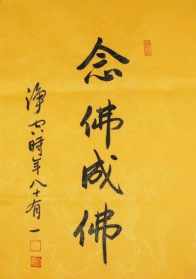 念佛成佛
淨空時年八十有一